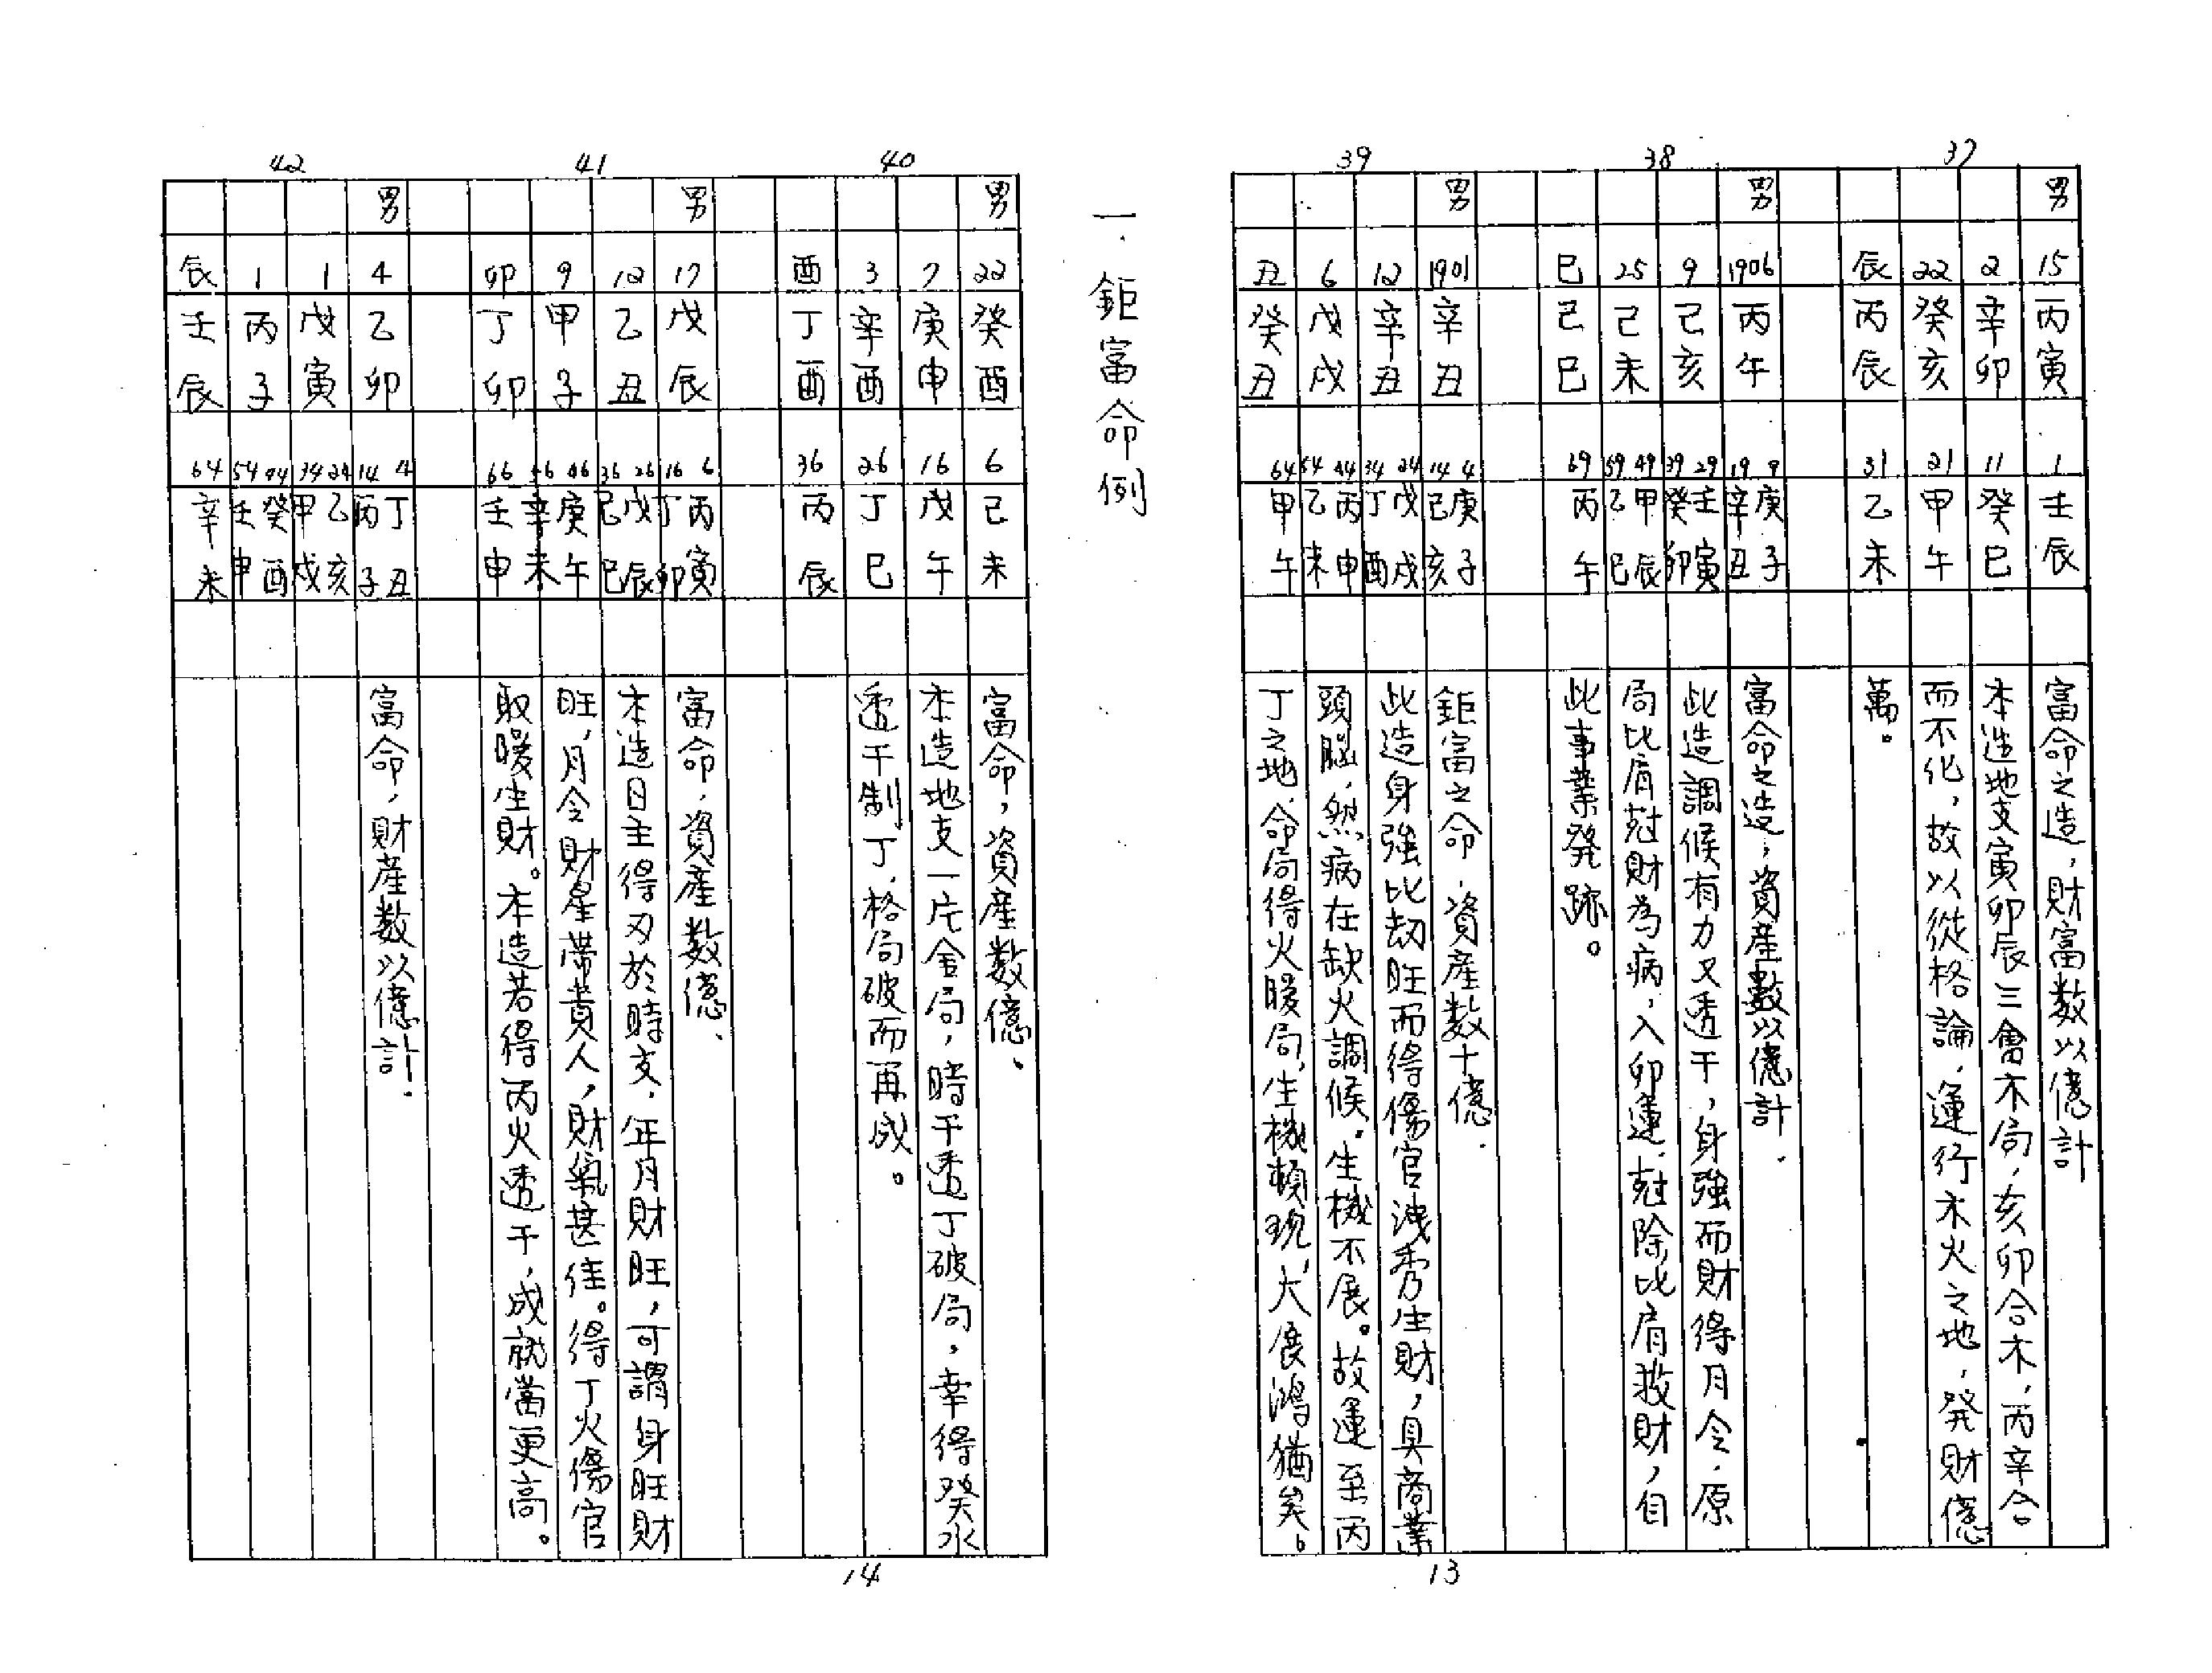 37
男
15 丙寅
2 辛卯
22 癸亥
辰 丙辰
1 壬辰
11 癸巳
21 甲午
31 乙未
富命之造，財富数以億計
本造地支寅卯辰三會木局，亥卯合木，丙辛合
而不化，故以從格論，運行木火之地，発財億
萬。
38
男
1906 丙午
9 己亥
25 己未
巳 己巳
9 庚子
19 辛丑
29 壬寅
39 癸卯
49 甲辰
59 乙巳
69 丙午
富命之造，資産數以億計．
此造調候有力又透干，身強而財得月令，原
局比肩尅財為病，入卯運，尅除比肩救財，自
此事業発跡。
39
男
1901 辛丑
12 辛丑
6 戊戌
丑 癸丑
4 庚子
14 己亥
24 戊戌
34 丁酉
44 丙申
54 乙未
64 甲午
鉅富之命，資産数十億．
此造身強比劫旺而得傷官洩秀生財，具商業
頭腦，然病在缺火調候，生機不展。故運至丙
丁之地，命局得火暖局，生機頓現，大展鴻猶矣。
13
一．鉅富命例
40
男
22 癸酉
7 庚申
3 辛酉
酉 丁酉
6 己未
16 戊午
26 丁巳
36 丙辰
富命，資産数億、
本造地支一片金局，時干透丁破局，幸得癸水
透干制丁，格局破而再成。
41
男
17 戊辰
12 乙丑
9 甲子
卯 丁卯
6 丙寅
16 丁卯
26 戊辰
36 己巳
46 庚午
56 辛未
66 壬申
富命，資産数億、
本造日主得刃於時支，年月財旺，可謂身旺財
旺，月令財星帯貴人，財氣甚佳。得丁火傷官
取暖生財。本造若得丙火透干，成就當更高。
42
男
4 乙卯
1 戊寅
1 丙子
辰 壬辰
4 丁丑
14 丙子
24 乙亥
34 甲戌
44 癸酉
54 壬申
64 辛未
富命，財産数以億計．
14